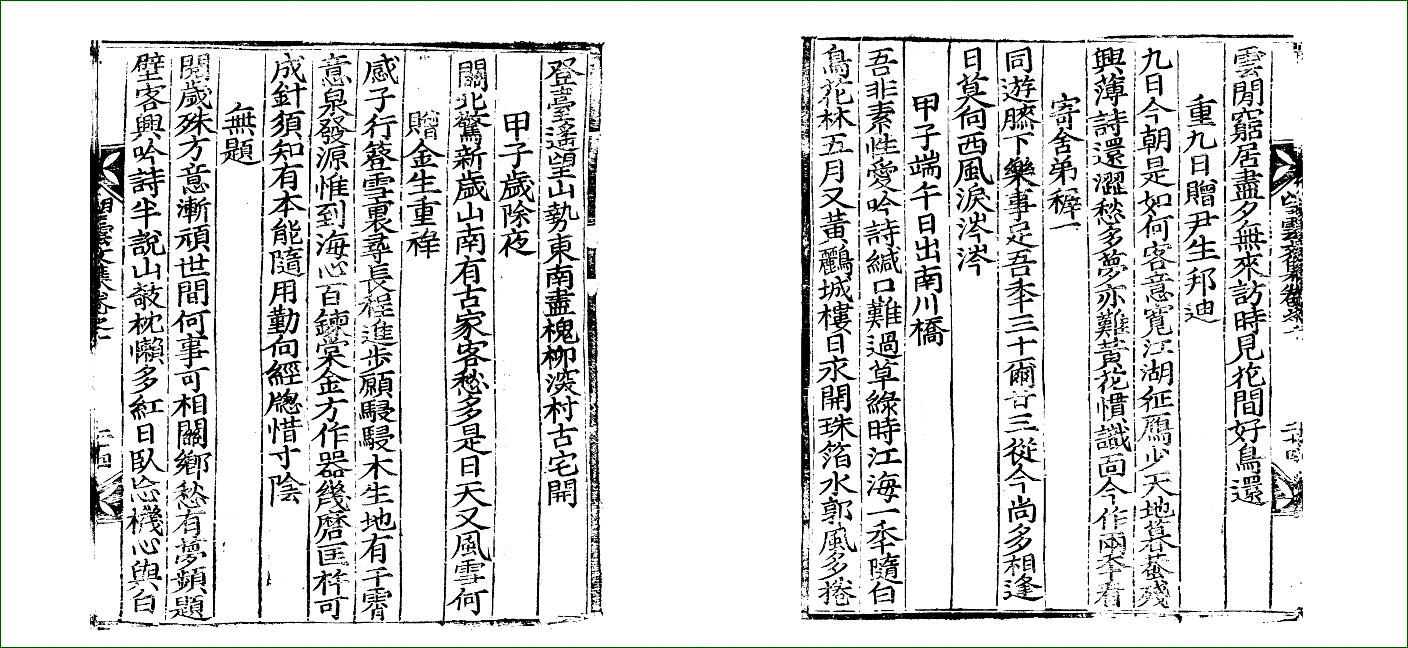 雲閒窮居盡夕無來訪時見花間好鳥還
重九日贈尹生邦迪
九日今朝是如何客意寬江湖征鴈少天地暮蛩殘
興薄詩還澀愁多夢亦難黃花慣識面今作兩年看
寄舍弟稺一
同遊膝下樂事足吾年三十爾曺三從今尚多相逢
日莫向西風淚涔涔
甲子端午日出南川橋
吾非素性愛吟詩緘口難過草綠時江海一年隨白
鳥花林五月又黃鸝城樓日永開珠箔水郭風多捲
登臺遙望山勢東南盡槐柳深村古宅開
甲子歲除夜
關北驚新歲山南有古家客愁多是日天又風雪何
贈金生重祥
感子行簦雪裏尋長程進步願駸駸木生地有干霄
意泉發源惟到海心百鍊嘗金方作器幾磨匡杵可
成針須知有本能隨用勤向經牕惜寸陰
無題
閱歲殊方意漸頑世間何事可相關鄉愁有夢頻題
壁客興吟詩半說山敧枕懶多紅日臥忘機心與白
二十四